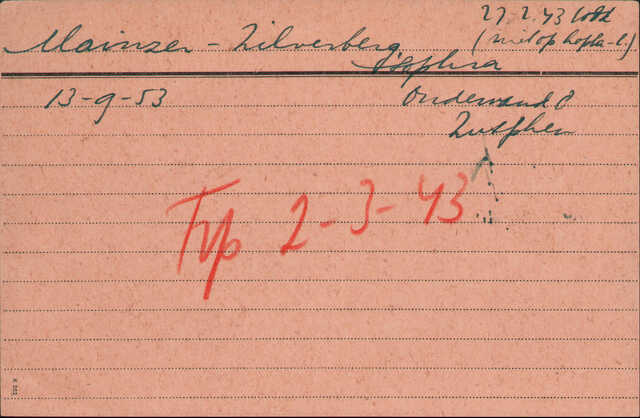 27.2.43 todd
Mainzer - Zilverberg, (niet op hopla-l.)
Sophia
13-9-53 Ondewand 8
Zutphen
Typ 2-3-43